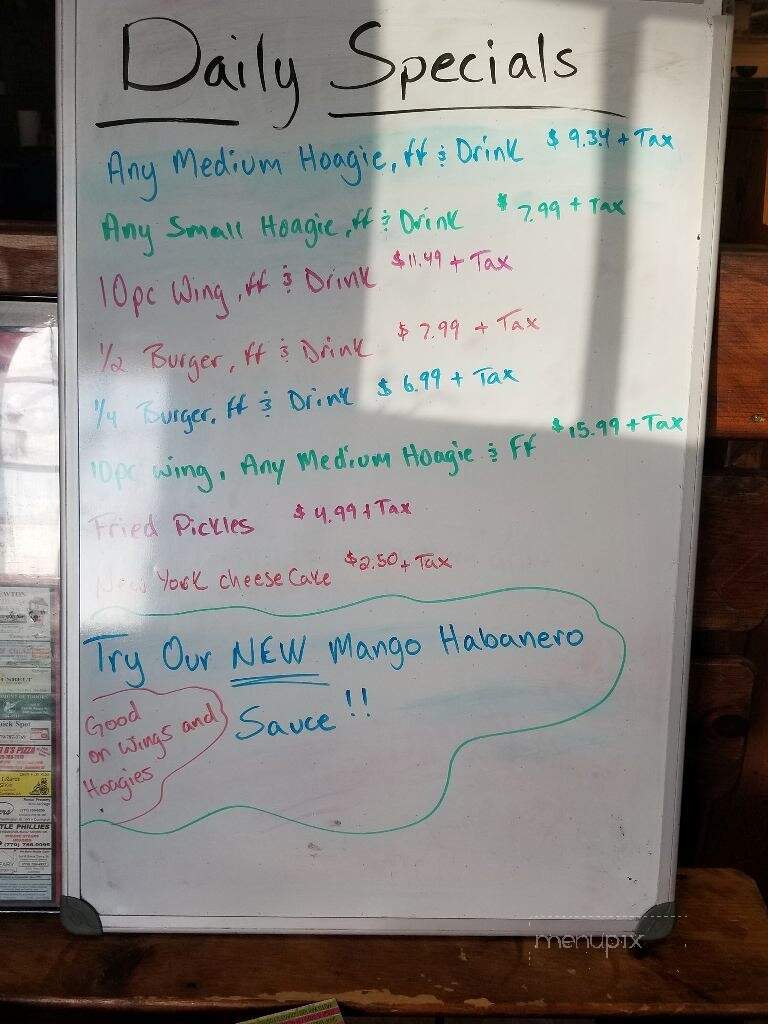 Daily Specials
Any Medium Hoagie, ff & Drink $ 9.34 + Tax
Any Small Hoagie, ff & Drink $ 7.99 + Tax
10pc Wing, ff & Drink $11.49 + Tax
1/2 Burger, ff & Drink $ 7.99 + Tax
1/4 Burger, ff & Drink $ 6.99 + Tax
10pc wing, Any Medium Hoagie & Ff $15.99 + Tax
Fried Pickles $4.99 + Tax
New York cheese Cake $2.50 + Tax
Try Our NEW Mango Habanero
Sauce !!
Good
on Wings and
Hoagies
B'S PIZZA
TLE PHILLIES
(770) 786-0095
menupix